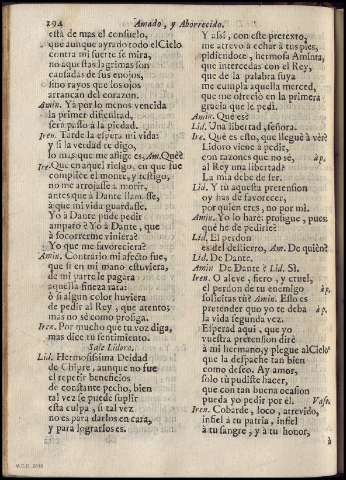 292 Amado, y Aborrecido.
està de mas el consuelo,
que aunque ayrado todo el Cielo
contra mi suerte se mira,
no aquestas lagrimas son
causadas de sus enojos,
sino rayos que los ojos
arrancan del corazon.
Amin. Yà por lo menos vencida
la primer dificultad,
serà passo à la piedad.
Iren. Tarde la espera mi vida:
y si la verdad te digo,
lo mas que me aflige es, Am. Què?
Ire. Que en aquel riesgo, en que fue
complice el monte, y testigo,
no me arrojasse à morir,
antes que à Dante llamasse,
à que mi vida guardasse.
Yo à Dante pude pedir
amparo? Yo à Dante, que
à socorrerme viniera?
Yo que me favoreciera?
Amin. Contrario mi afecto fue,
que si en mi mano estuviera,
de mi parte le pagàra
aquella fineza rara:
ò si algun color huviera
de pedir al Rey, que atentos
mas no sè como prosiga.
Iren. Por mucho que tu voz diga,
mas dice tu sentimiento.
Sale Lidoro.
Lid. Hermosissima Deidad
de Chipre, aunque no fue
el repetir beneficios
de constante pecho, bien
tal vez se puede suplir
esta culpa, si tal vez
no es para darlos en cara,
y para lograrlos es.
Y assi, con este pretexto,
me atrevo à echar à tus pies,
pidiendote, hermosa Aminta,
que intercedas con el Rey,
que de la palabra suya
me cumpla aquella merced,
que me ofreciò en la primera
gracia que le pedì.
Amin. Què es?
Lid. Una libertad, señora.
Ire. Què es esto, que lleguè à vèr?
Lidoro viene à pedir,
con razones que no sè, àp.
al Rey una libertad?
La mia debe de ser.
Lid. Y tù aquesta pretension
oy has de favorecer,
por quien eres, no por mi.
Amin. Yo lo harè: prosigue, pues:
què he de pedirle?
Lid. El perdon
es del destierro, Am. De quièn?
Lid. De Dante.
Amin De Dante? Lid. Sì.
Iren. O aleve, fiero, y cruel,
el perdon de tu enemigo àp.
solicitas tù? Amin. Esso es
pretender que yo te deba àp.
la vida segunda vez.
Esperad aqui, que yo
vuestra pretension dirè
à mi hermano, y plegue al Cielo
que la despache tan bien
como deseo. Ay amor,
solo tù pudiste hacer,
que con tan buena ocasion
pueda yo pedir por èl. Vase.
Iren. Cobarde, loco, atrevido,
infiel à tu patria, infiel
à tu sangre, y à tu honor,
à